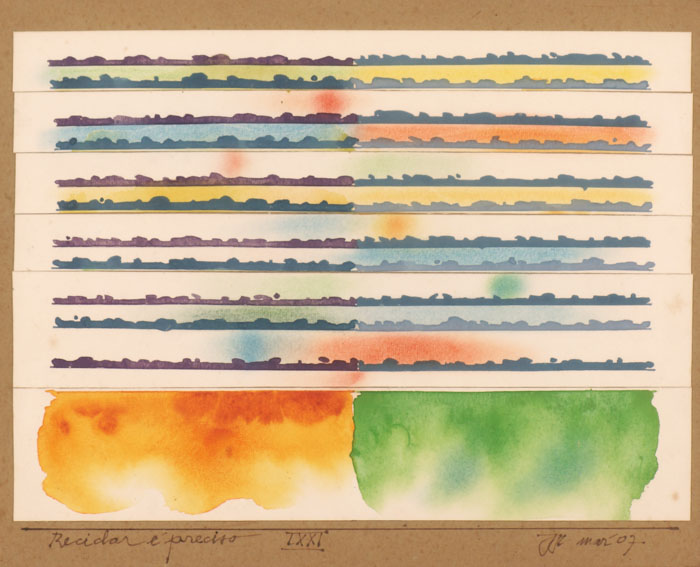 Reciclar é preciso LXXI mar 07.